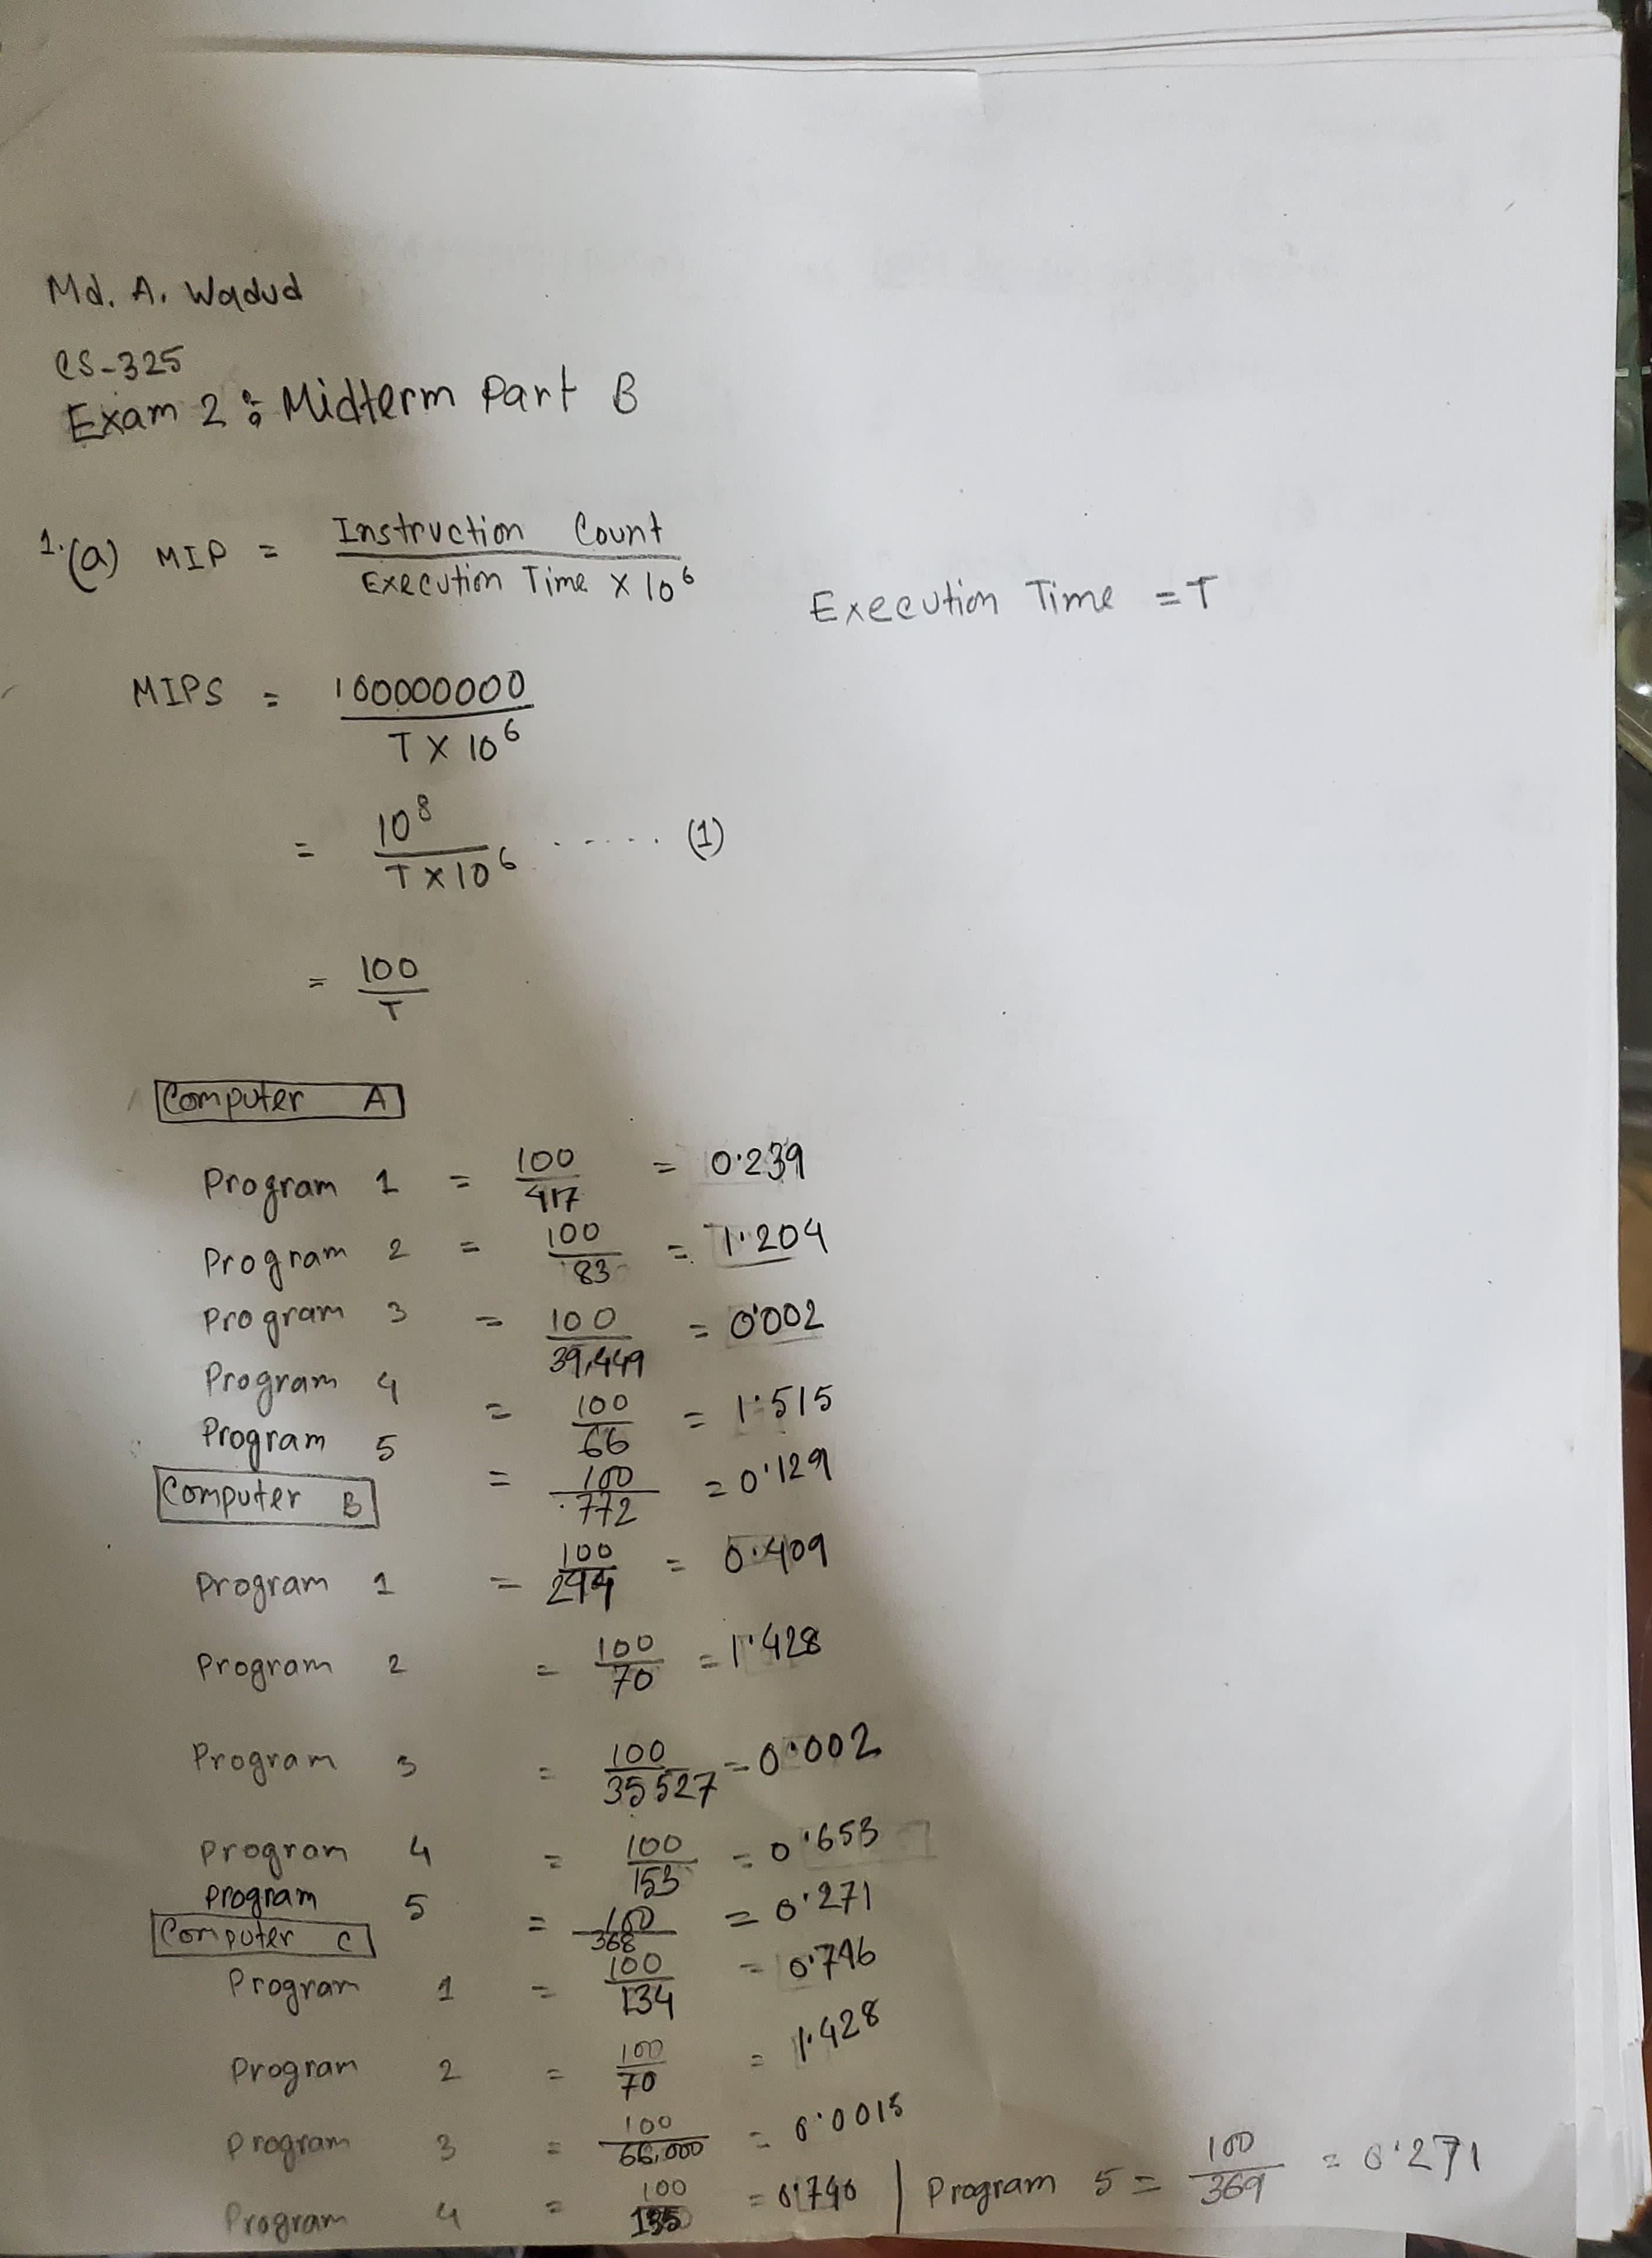 Md. A. Wadud
CS-325
Exam 2 : Midterm Part B
1.(a) MIP = Instruction Count / Execution Time X 10^6
Execution Time = T
MIPS = 100000000 / T X 10^6
= 10^8 / T X 10^6 ...... (1)
= 100 / T
Computer A
Program 1 = 100 / 417 = 0.239
Program 2 = 100 / 83 = 1.204
Program 3 = 100 / 39,449 = 0.002
Program 4 = 100 / 66 = 1.515
Program 5 = 100 / 772 = 0.129
Computer B
Program 1 = 100 / 244 = 0.409
Program 2 = 100 / 70 = 1.428
Program 3 = 100 / 35527 = 0.002
Program 4 = 100 / 153 = 0.653
Program 5 = 100 / 368 = 0.271
Computer C
Program 1 = 100 / 134 = 0.746
Program 2 = 100 / 70 = 1.428
Program 3 = 100 / 66,000 = 0.0015
Program 4 = 100 / 135 = 0.740 | Program 5 = 100 / 369 = 0.271